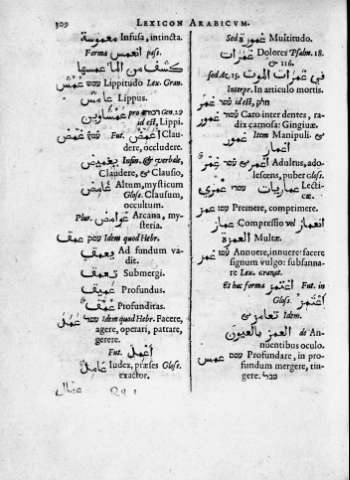 309 LEXICON ARABICVM.
مغموسة Infusa, intincta.
Forma انغمس pass.
Lippitudo Lex. Gran.
Lippus.
pro Gen. 19
id est, Lippi.
غمض Fut. اغمض Clau-
dere, occludere.
تغميض Infin. & verbale,
Claudere, & Clausio,
غامض Altum, mysticum
Gloss. Clausum,
occultum.
Plur. غوامض Arcana, my-
steria.
عمق Idem quod Hebr.
يعمق Ad fundum va-
dit.
تعمق Submergi.
عميق Profundus.
عمق Profunditas.
عمل Idem quod Hebr. Facere,
agere, operari, patrare,
gerere.
Fut. اعمل
عامل Iudex, præses Gloss.
exactor.
Sed غمور Multitudo.
غمرات Dolores Psalm. 18.
& 116.
Sed Act. 25. في غمرات الموت
Interpr. In articulo mortis.
id est,
غمور Caro inter dentes, ra-
dix carnosa: Gingiuæ.
غمور Item Manipuli. &
اغمار
Adultus, ado-
lescens, puber Gloss.
عماريات Lecti-
cæ.
غمز Premere, comprimere.
انغماز Compressio vel غماز
الغمزة Multæ.
غمز Annuere, innuere: facere
signum vulgo: subsanna-
re Lex. Granat.
Et hac forma اغتمز Fut. in
Gloss. اغتمز
تغامز & Idem.
الغمز بالعيون de An-
nuentibus oculo.
غمس Profundare, in pro-
fundum mergere, tin-
gere.